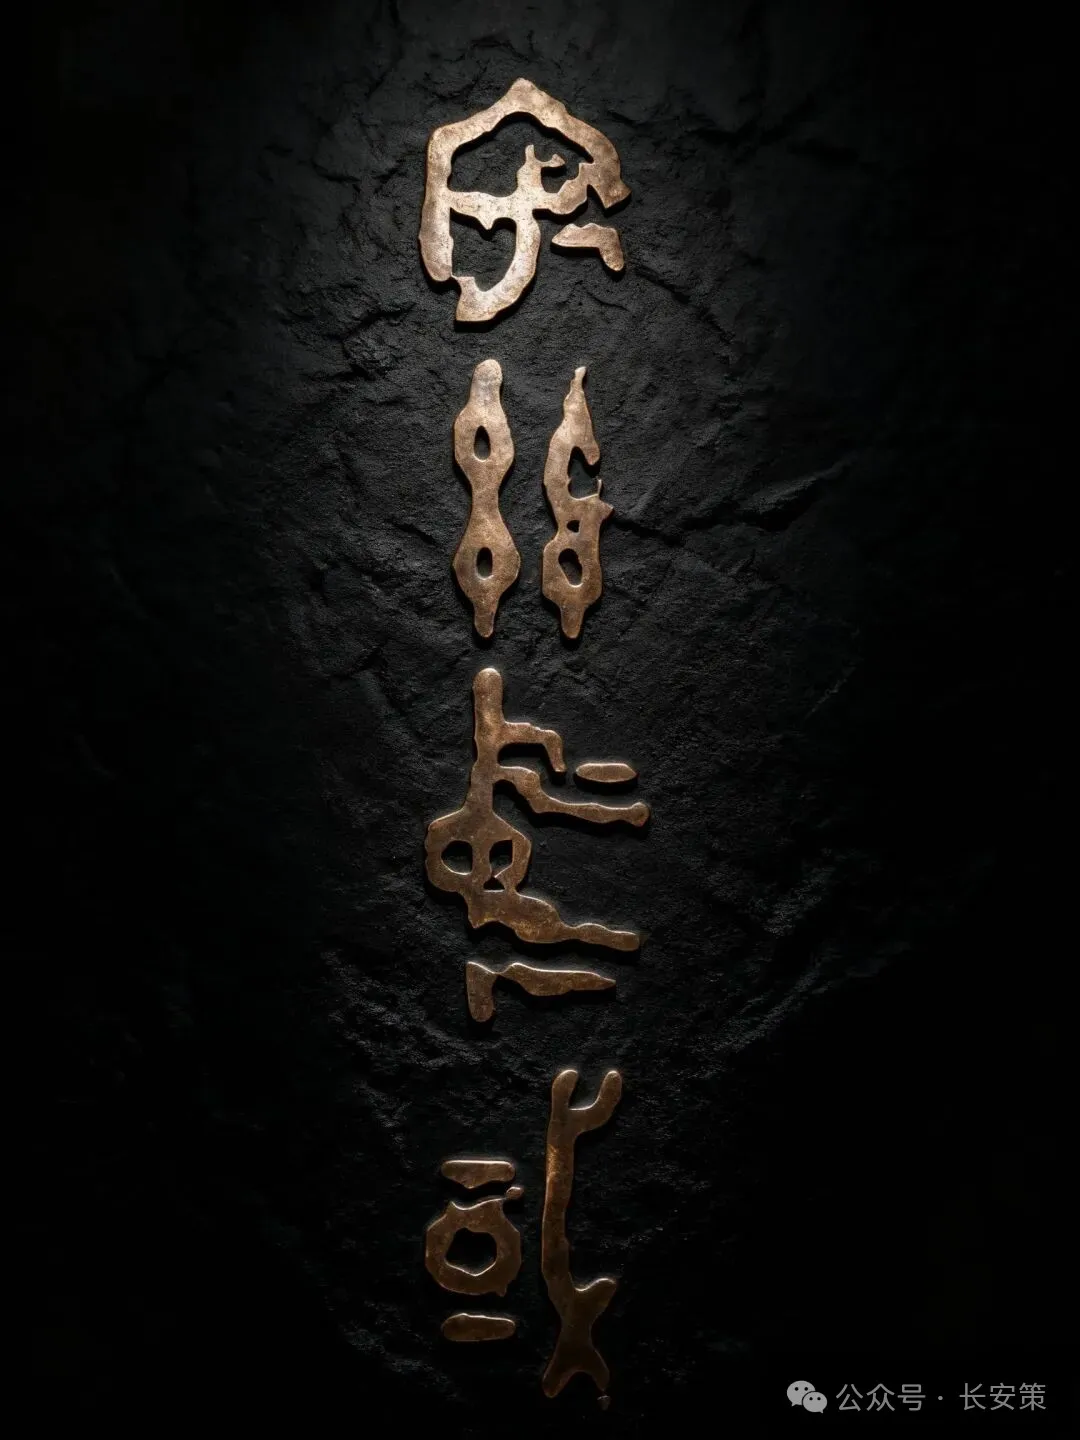 宅兹中国
公众号 · 长安策